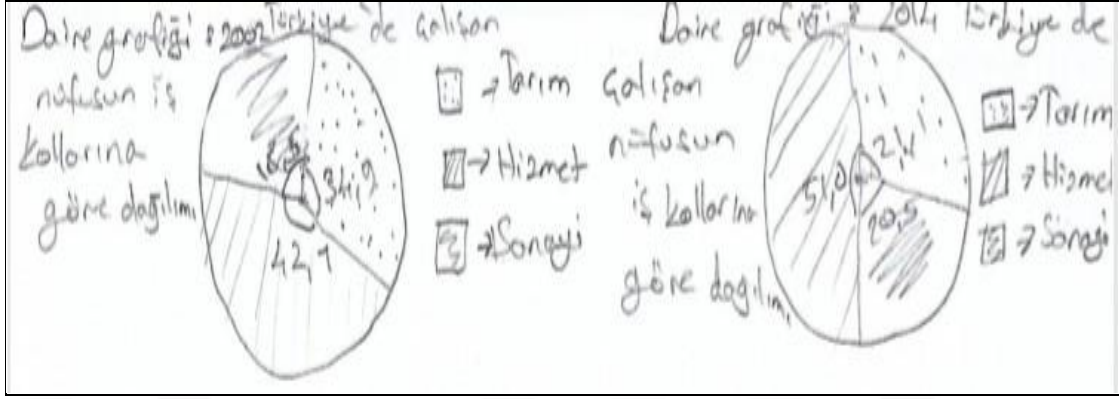 Daire grafiği : 2002 Türkiye'de çalışan
nüfusun iş
kollarına
göre dağılımı
34,9
42,1
→ Tarım
→ Hizmet
→ Sanayi
Daire grafiği : 2014 Türkiye de
çalışan
nüfusun
iş kollarına
göre dağılımı
20,5
→ Tarım
→ Hizmet
→ Sanayi